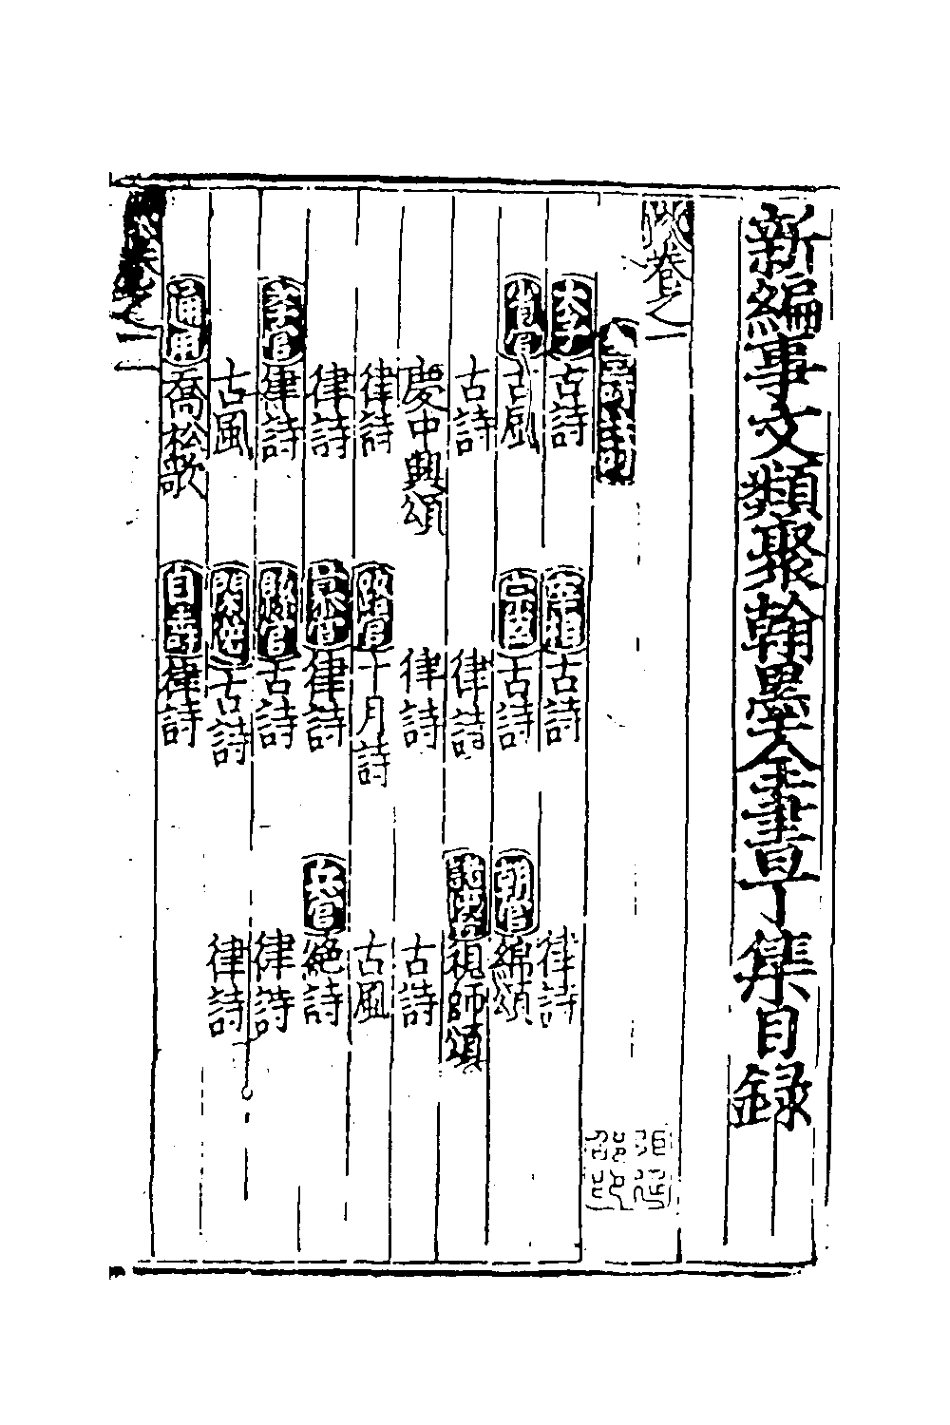 新編事文類聚翰墨全書丁集目錄
卷之一
壽詩
太子 古詩 宰相 古詩 律詩
省官 古風 古詩 朝官 綿頌
古詩 律詩 師頌
慶中興頌 律詩 古詩
律詩 路官 十月詩 古風
律詩 京官 律詩 兵官 絕詩
李官 律詩 縣官 古詩 律詩
古風 古詩 律詩
通用 喬松歌 自壽 律詩
卷之二